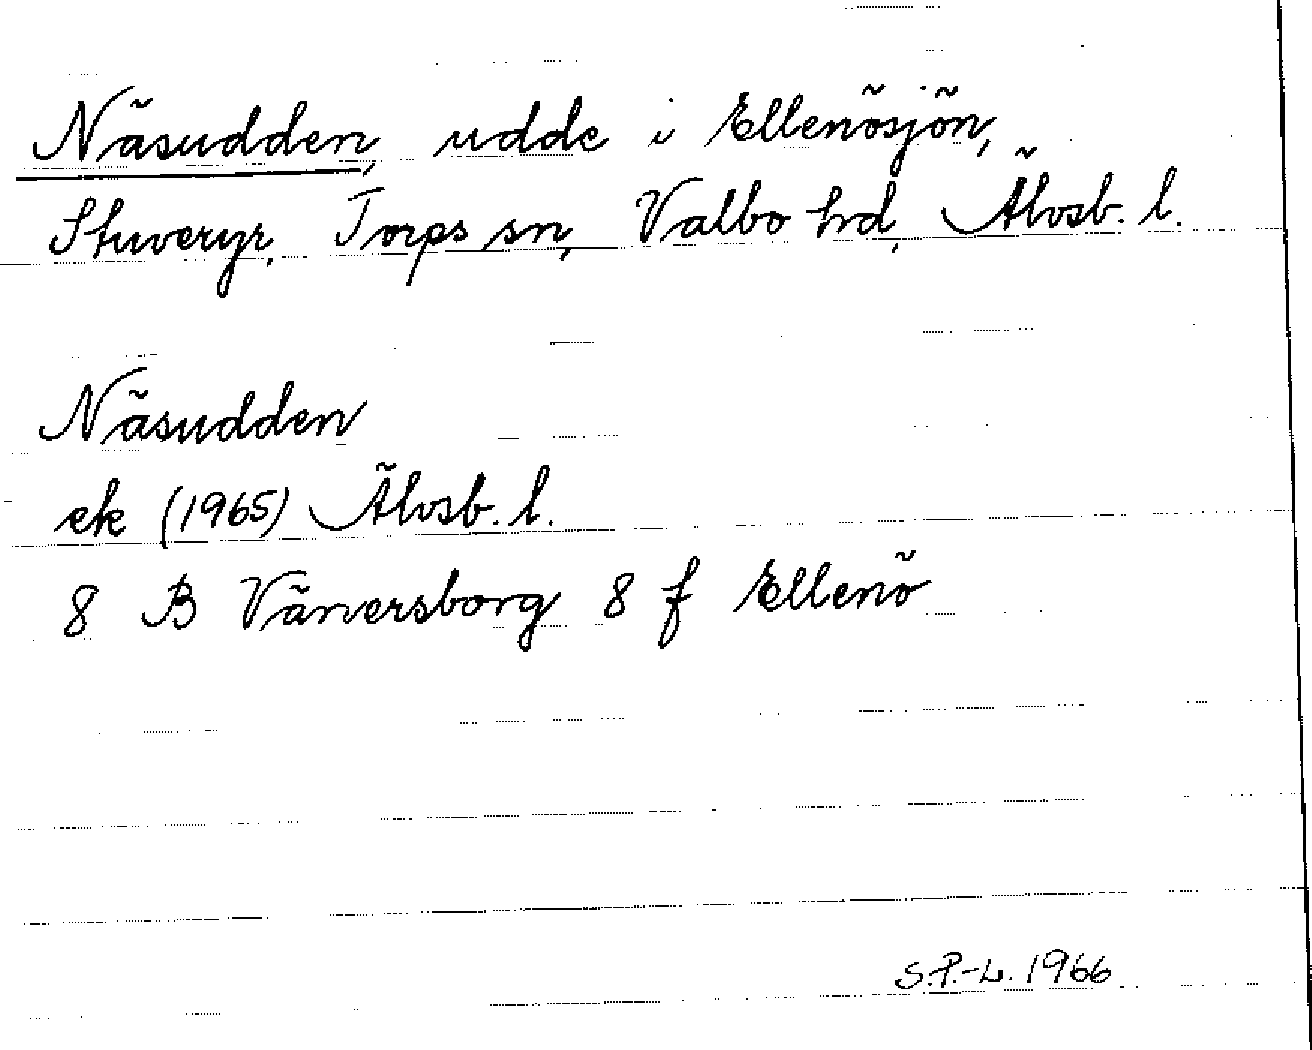 Näsudden, udde i Ellenösjön,
Stuveryr, Torps sn, Valbo hd, Älvsb. l.
Näsudden
ek (1965) Älvsb. l.
8 B Vänersborg 8 f Ellenö
S.P.-L. 1966